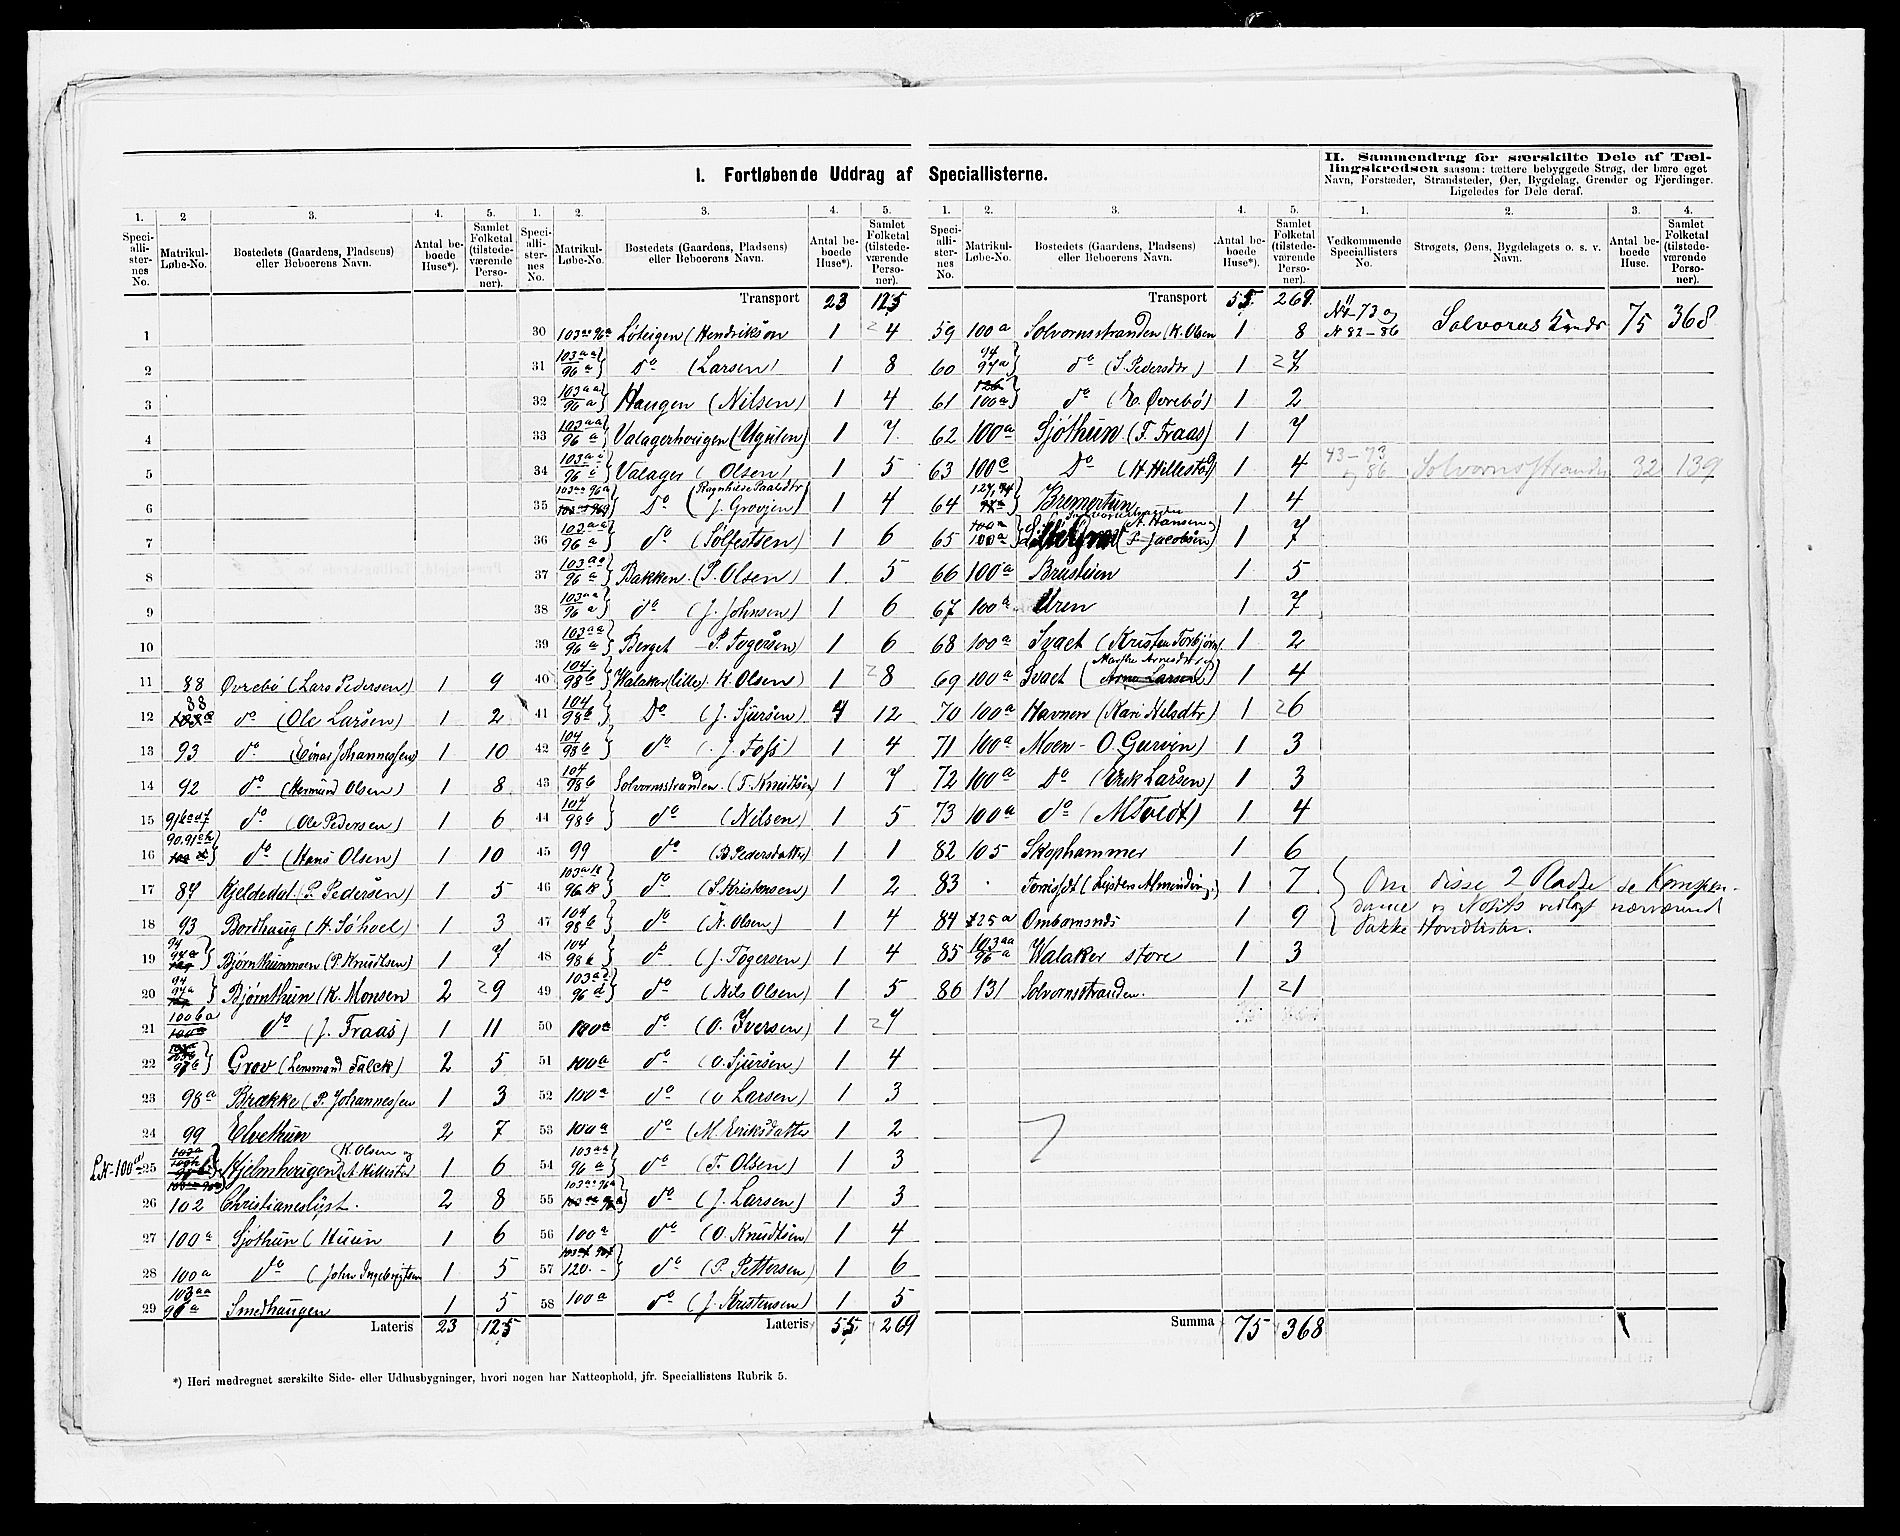 I. Fortløbende Uddrag af Speciallisterne.
II. Sammendrag for særskilte Dele af Tællingskredsen saasom: tættere bebyggede Strøg, der bære eget
Navn, Forstæder, Strandsteder, Øer, Bygdelag, Grender og Fjerdinger.
Ligeledes for Dele deraf.
1. 2 3. 4. 5. 1. 2. 3. 4. 5.
Speciallisternes No. Matrikul-Løbe-No. Bostedets (Gaardens, Pladsens) eller Beboerens Navn. Antal beboede Huse*). Samlet Folketal (tilstedeværende Personer).
Speciallisternes No. Matrikul-Løbe-No. Bostedets (Gaardens, Pladsens) eller Beboerens Navn. Antal beboede Huse*). Samlet Folketal (tilstedeværende Personer).
1
2
3
4
5
6
7
8
9
10
11 88 Øvrebø (Lars Pedersen) 1 9
12 88 do (Ole Larsen) 1 2
13 93 do (Einar Johannessen) 1 10
14 92 do (Hermund Olsen) 1 8
15 do (Ole Pedersen) 1 6
16 do (Hans Olsen) 1 10
17 87 Kjeldedal (P. Pedersen) 1 5
18 93 Bordhaug (H. Søhoel) 1 3
19 Bjørnthunmoen (P. Knudtsen) 1 7
20 Bjørnthun (K. Monsen 2 29
21 do (J. Fraas) 1 11
22 Grov (Lensmand Falck) 2 5
23 98a Brække (P. Johannessen 1 3
24 99 Elvethun 2 7
25 Hjelmhougen (K. Olsen og A. Hillestad 1 6
26 102 Christianeslyst. 2 8
27 100a Sjøthun (Huun 1 6
28 100a do (John Ingebrigtsen 1 5
29 103aa 96a Smedhaugen 1 5
Lateris 23 125
Transport 23 125
30 103aa 96a Løteigen (Hendrikson 1 24
31 103aa 96a do (Larsen) 1 8
32 103aa 96a Haugen (Nilsen) 1 4
33 103aa 96a Valagerhougen (Ugulen) 1 7
34 Valager (Olsen) 1 5
35 103aa 96a Do (J. Grovjen) 1 4
36 103aa 96a do (Solfestsen) 1 6
37 103aa 96a Bakken (P. Olsen) 1 5
38 103aa 96a do (J. Johnsen) 1 6
39 103aa 96a Berget P. Togersen) 1 6
40 104. 98b Walaker (lille). K. Olsen) 1 28
41 104 98b Do (J. Sjursen) 4 12
42 104 98b do (J. Foss) 1 4
43 104 98b Solvornsstranden. (T. Knudtsen) 1 7
44 104 98b do (Nilsen) 1 5
45 99 do (B. Pedersdatter) 1 1
46 do (S. Kristensen) 1 2
47 104 98b do (A. Olsen) 1 4
48 104 98b do (J. Togersen) 1 4
49 do (Nils Olsen) 1 5
50 100a do (O. Iversen) 1 27
51 100a do (O. Sjursen) 1 4
52 100a do (O Larsen) 1 3
53 100a do (M. Eriksdatter 1 2
54 103aa 96a do (T. Olsen) 1 3
55 103aa 96a do (J. Larsen) 1 3
56 100a do (O. Knudtsen) 1 4
57 120. do (P. Pettersen) 1 6
58 100a do (J. Kristensen) 1 5
Lateris 55 269
*) Heri medregnet særskilte Side- eller Udhusbygninger, hvori nogen har Natteophold, jfr. Speciallistens Rubrik 5.
1. 2. 3. 4. 5. 1. 2. 3. 4.
Speciallisternes No. Matrikul-Løbe-No. Bostedets (Gaardens, Pladsens) eller Beboerens Navn. Antal beboede Huse*). Samlet Folketal (tilstedeværende Personer).
Transport 55. 269
59 100a Solvornsstranden (K. Olsen 1 8
60 do (S. Pedersdtr) 1 27
61 100a do (E. Øvrebø) 1 2
62 100a Sjøthun (F. Fraas) 1 7
63 100a Do (H. Hillestad) 1 4
64 Bremertun 1 4
65 100a (A. Hansen og P. Jacobsen) 1 7
66 100a Brustuen 1 5
67 100a Uren 1 7
68 100a Svaet (Kristen Torbjørns 1 2
69 100a Svaet (Marthe Arnesdtr Arne Larsen) 1 4
70 100a Havnen (Kari Nilsdtr) 1 26
71 100a Moen - O. Gurvin) 1 3
72 100a Do (Erik Larsen) 1 3
73 100a do (M Tvedt) 1 4
82 105 Skophammer 1 6
83 (Leisters Almending.) 1 7
84 125a Ombornsnes 1 9
85 103aa 96a Walaker store 1 3
86 131 Solvornsstranden. 1 21
Summa 75 368
Vedkommende Speciallisters No. Strøgets, Øens, Bygdelagets o. s. v. Navn. Antal beboede Huse. Samlet Folketal (tilstedeværende Personer).
11-73 og N 82-86 Solvorns 75 368
43-73 og 86 Solvornsstranden 32 139
Om disse 2 Pladse se
vedlagt nærværende
Pakke Hovedlister.